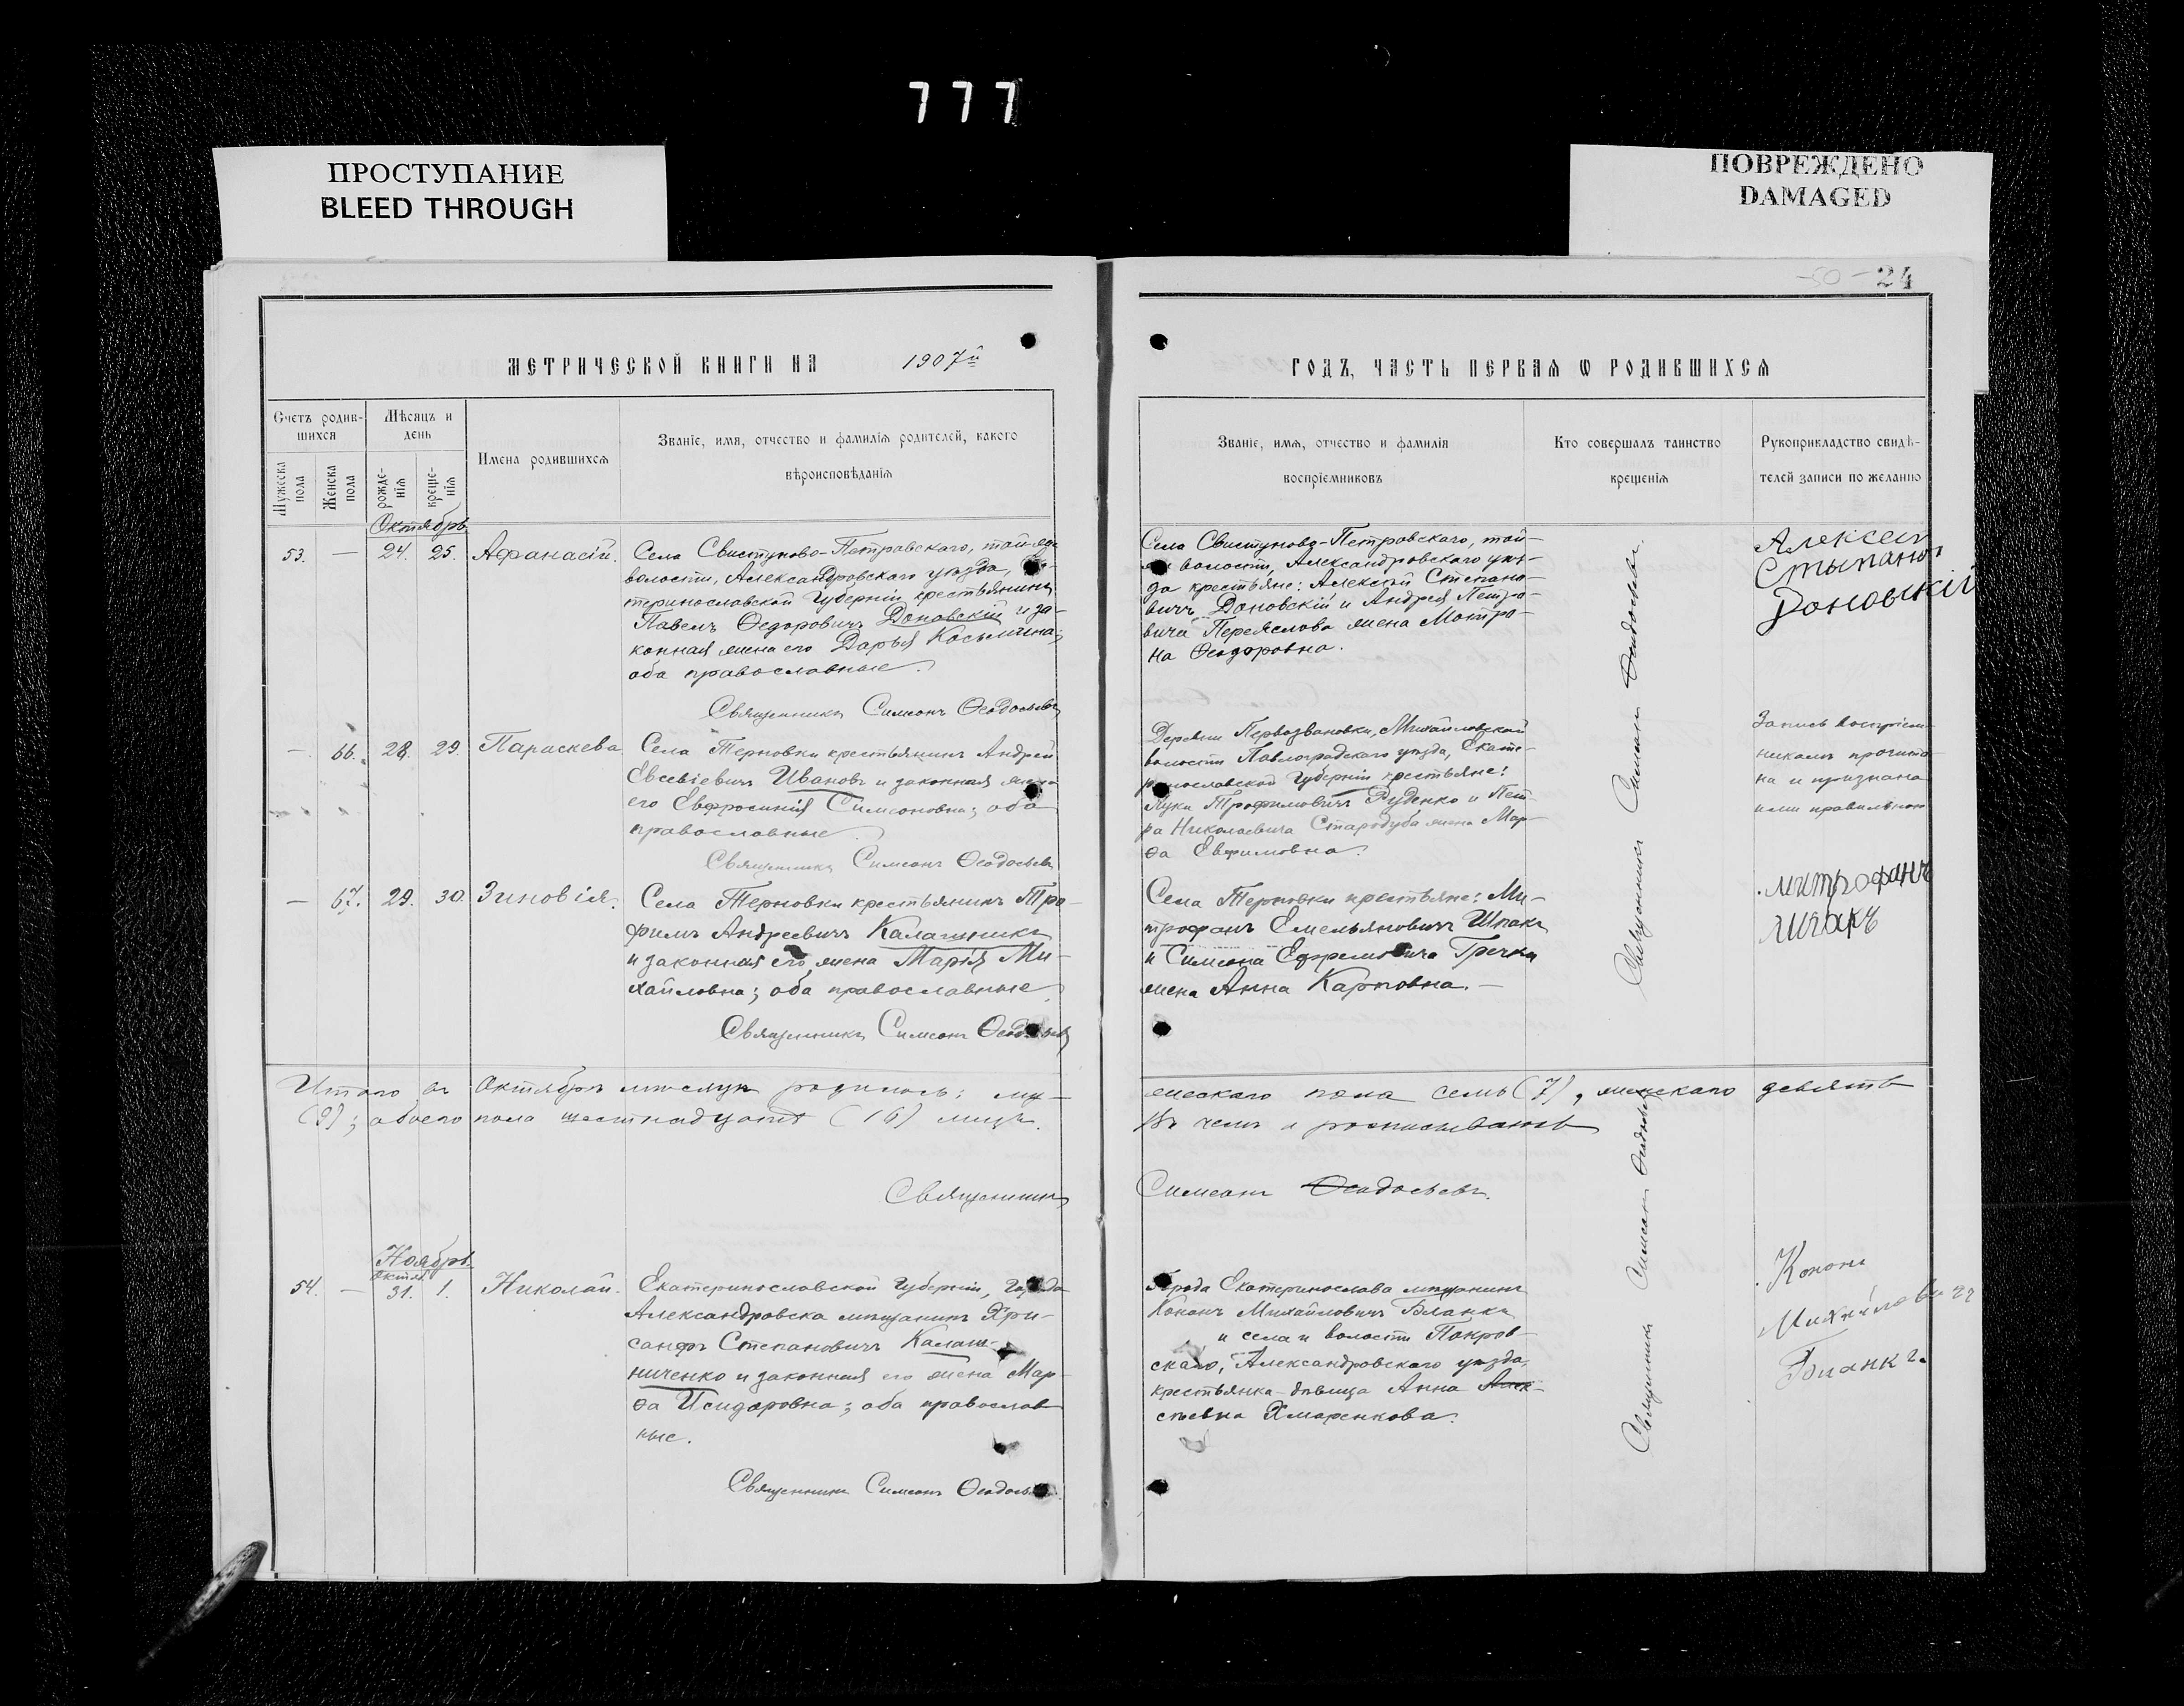 777
ПРОСТУПАНИЕ
BLEED THROUGH
ПОВРЕЖДЕНО
DAMAGED
-50- 24
МЕТРИЧЕСКОЙ КНИГИ НА 1907й
ГОДЪ, ЧАСТЬ ПЕРВАЯ Ѡ РОДИВШИХСЯ
Счетъ родив-
шихся
Мужеска
пола
Женска
пола
Мѣсяцъ и
день
рожде-
нія
креще-
нія
Имена родившихся
Званіе, имя, отчество и фамилія родителей, какого
вѣроисповѣданія
Званіе, имя, отчество и фамилія
воспріемниковъ
Кто совершалъ таинство
крещенія
Рукоприкладство свидѣ-
телей записи по желанію
Октябрь
53. — 24. 25. Аѳанасій.
Села Свистуново-Петровскаго, той-же
волости, Александровскаго уѣзда,
теринославской Губерніи крестьянинъ
Павелъ Ѳедоровичъ Доновскій и за-
конная жена его Дарья Косьмина;
оба православные.
Священникъ Симеонъ Ѳеодосьевъ
Села Свистуново-Петровскаго, той-
же волости, Александровскаго уѣз-
да крестьяне: Алексѣй Степано-
вичъ Доновскій и Андрея Петро-
вича Переяслова жена Матро-
на Ѳеодоровна.
Алексеи
Стыпанов
Доновскій
— 66. 28. 29. Параскева.
Села Терновки крестьянинъ Андрей
Евсевіевичъ Ивановъ и законная жена
его Евфросинія Симеоновна; оба
православные.
Священникъ Симеонъ Ѳеодосьевъ
Деревни Первозвановки, Михайловской
волости Павлоградскаго уѣзда, Екате-
ринославской Губерніи крестьяне:
Лука Трофимовичъ Руденко и Пет-
ра Николаевича Стародуба жена Мар-
ѳа Евфимовна.
Запись воспріем-
никамъ прочита-
на и признана
ими правильною
— 67. 29. 30. Зиновія.
Села Терновки крестьянинъ Тро-
фимъ Андреевичъ Калашникъ
и законная его жена Марія Ми-
хайловна; оба православные
Священникъ Симеонъ Ѳеодосьевъ
Села Терновки крестьяне: Ми-
трофанъ Емельяновичъ Шпакъ
и Симеона Ефремовича Гречки
жена Анна Карповна. —
митрофанъ
шпакъ
Священникъ Симеонъ Ѳеодосьевъ.
Итого въ Октябрѣ мѣсяцѣ родилось: му-
жескаго пола семь (7), женскаго девять
(9); обоего пола шестнадцать (16) лицъ.
Въ чемъ и росписываюсь
Священникъ
Симеонъ Ѳеодосьевъ.
Ноябрь
Октяб.
54. — 31. 1. Николай.
Екатеринославской Губерніи, Города
Александровска мѣщанинъ Хри-
санфъ Степановичъ Калаш-
ниченко и законная его жена Мар-
ѳа Исидоровна; оба православ-
ные.
Священникъ Симеонъ Ѳеодосьевъ
Города Екатеринослава мѣщанинъ
Кононъ Михайловичъ Бланкъ
и села и волости Покров-
скаго, Александровскаго уѣзда,
крестьянка-дѣвица Анна Алек-
сѣевна Хмаренкова.
Священникъ Симеонъ Ѳеодосьевъ
Кононъ
Михайловичъ